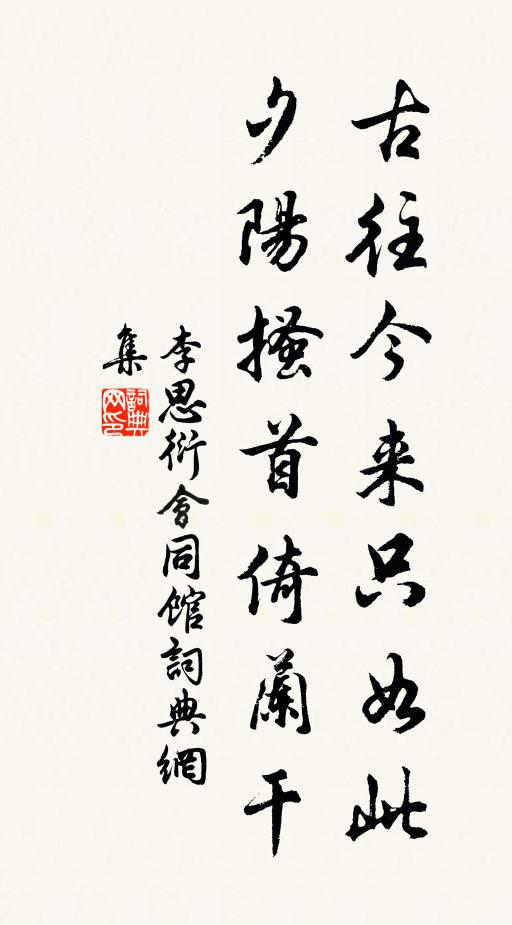 古往今来只如此
夕陽搔首倚蘭干
李思衍會同馆詞典網
集
詞典
网印